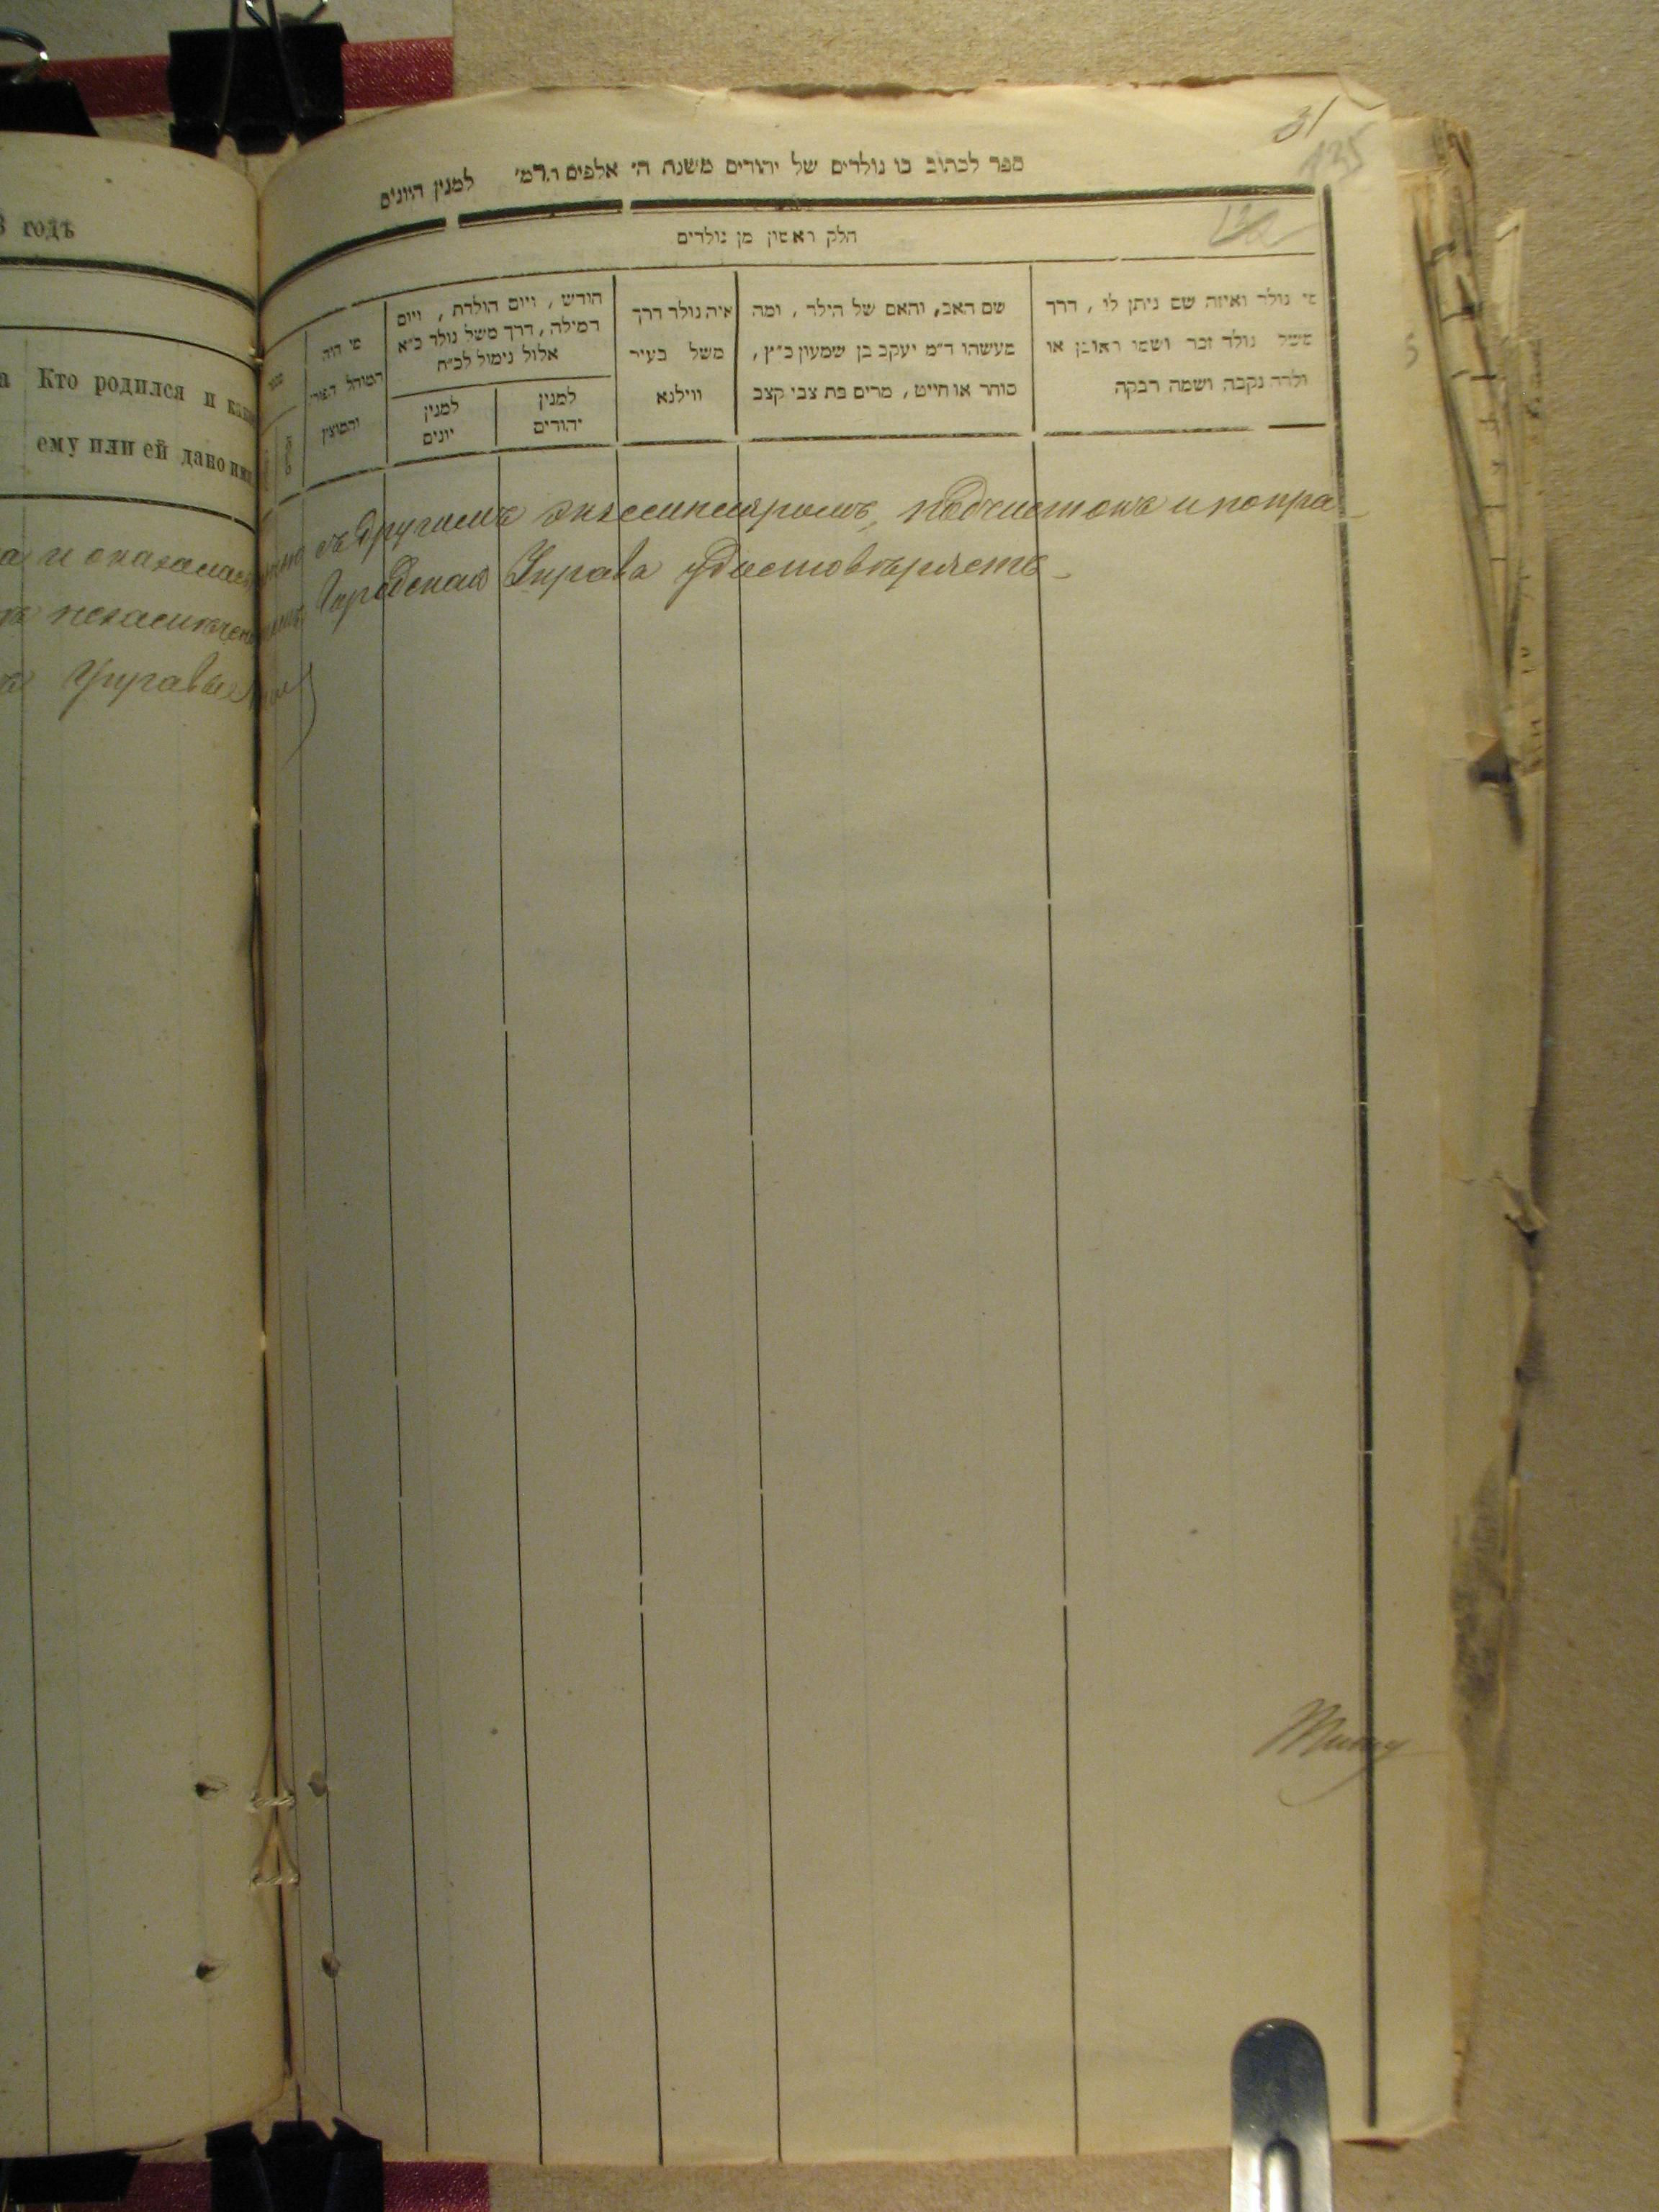 31
135
ספר לכתוב בו נולדים של יהודים משנת ה׳ אלפים ו.רמ׳ למנין היונים
חלק ראשון מן נולדים
מי נולד ואיזה שם ניתן לו, דרך
משל נולד זכר ושמו ראובן או
ולדה נקבה ושמה רבקה
שם האב, והאם של הילד, ומה
מעשהו ד״מ יעקב בן שמעון כ״ץ,
סוחר או חייט, מרים בת צבי קצב
איה נולד דרך
משל בעיר
ווילנא
חודש, ויום הולדת, ויום
המילה, דרך משל נולד כ״א
אלול נימול לכ״ח
למנין
יהודים
למנין
יונים
מי היה
המוהל
והמוצץ
съ другимъ экземпляромъ, подчистокъ и попра-
Городская Управа удостовѣряетъ
3 годъ
Кто родился и
ему или ей дано
и оказалась
Управы